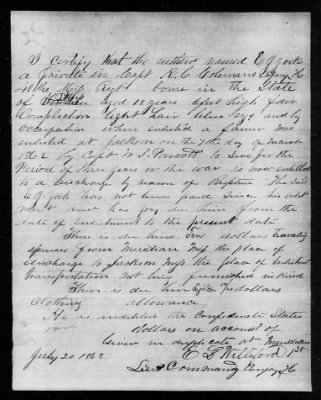 I certify that the within named E G York
a private in Capt R. C. Coleman's Company
40 the Miss Regt borne in the State
of aged 18 years feet high fair
Complexion light hair blue eyes and by
occupation when enlisted a farmer was
enlisted at Jackson on the 7th day of March
1862 by Capt W. S. to serve for the
Period of three years or the war is now entitled
to a discharge by reason of The said
E G York has not been paid since his enlist
ment and has pay due him from the
date of enlistment to the present date
There is due him Ten dollars traveling
expenses from Meridian Miss the place of
discharge to Jackson Miss the place of enlistment
transportation not being furnished in kind
There is due him dollars
Clothing allowance.
He is indebted the Confederate States
dollars on account of
Given in duplicate at Meridian
July 20 1862 E L Williford 1st
Lieut Commanding Company